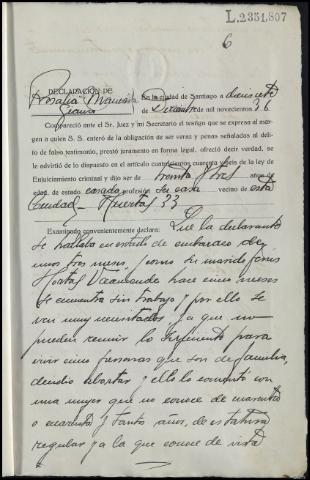 L.2351,807
6
DECLARACIÓN DE
Rosalía Maneiro En la ciudad de Santiago a diecisiete
de de novecientos 36
Compareció ante el Sr. Juez y mi Secretario el testigo que se expresa al mar-
gen a quien S. S. enteró de la obligación de ser veraz y penas señaladas al de-
lito de falso testimonio, prestó juramento en forma legal, ofreció decir verdad, se
le advirtió de lo dispuesto en el artículo cuatrocientos cuarenta y seis de la ley de
Enjuiciamiento criminal y dijo ser de treinta y tres años de
edad, de estado casada profesión su casa vecino de esta
Ciudad Huertas 33
Examinado convenientemente declara: Que la declarante
se hallaba en estado de embarazo de
unos tres meses y como su marido Jesús
hace cinco meses
se encuentra sin trabajo y por ello se
ven muy necesitados ya que no
pueden reunir lo suficiente para
vivir cinco personas que son de familia,
decidió abortar y ello lo comentó con
una mujer que no conoce de cuarenta
o cuarenta y tantos años, de estatura
regular y a la que conoce de vista